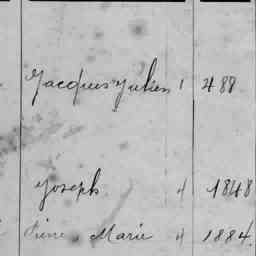 Jacques Julien 1 488
Joseph 4 1848
Pierre Marie 4 1884.